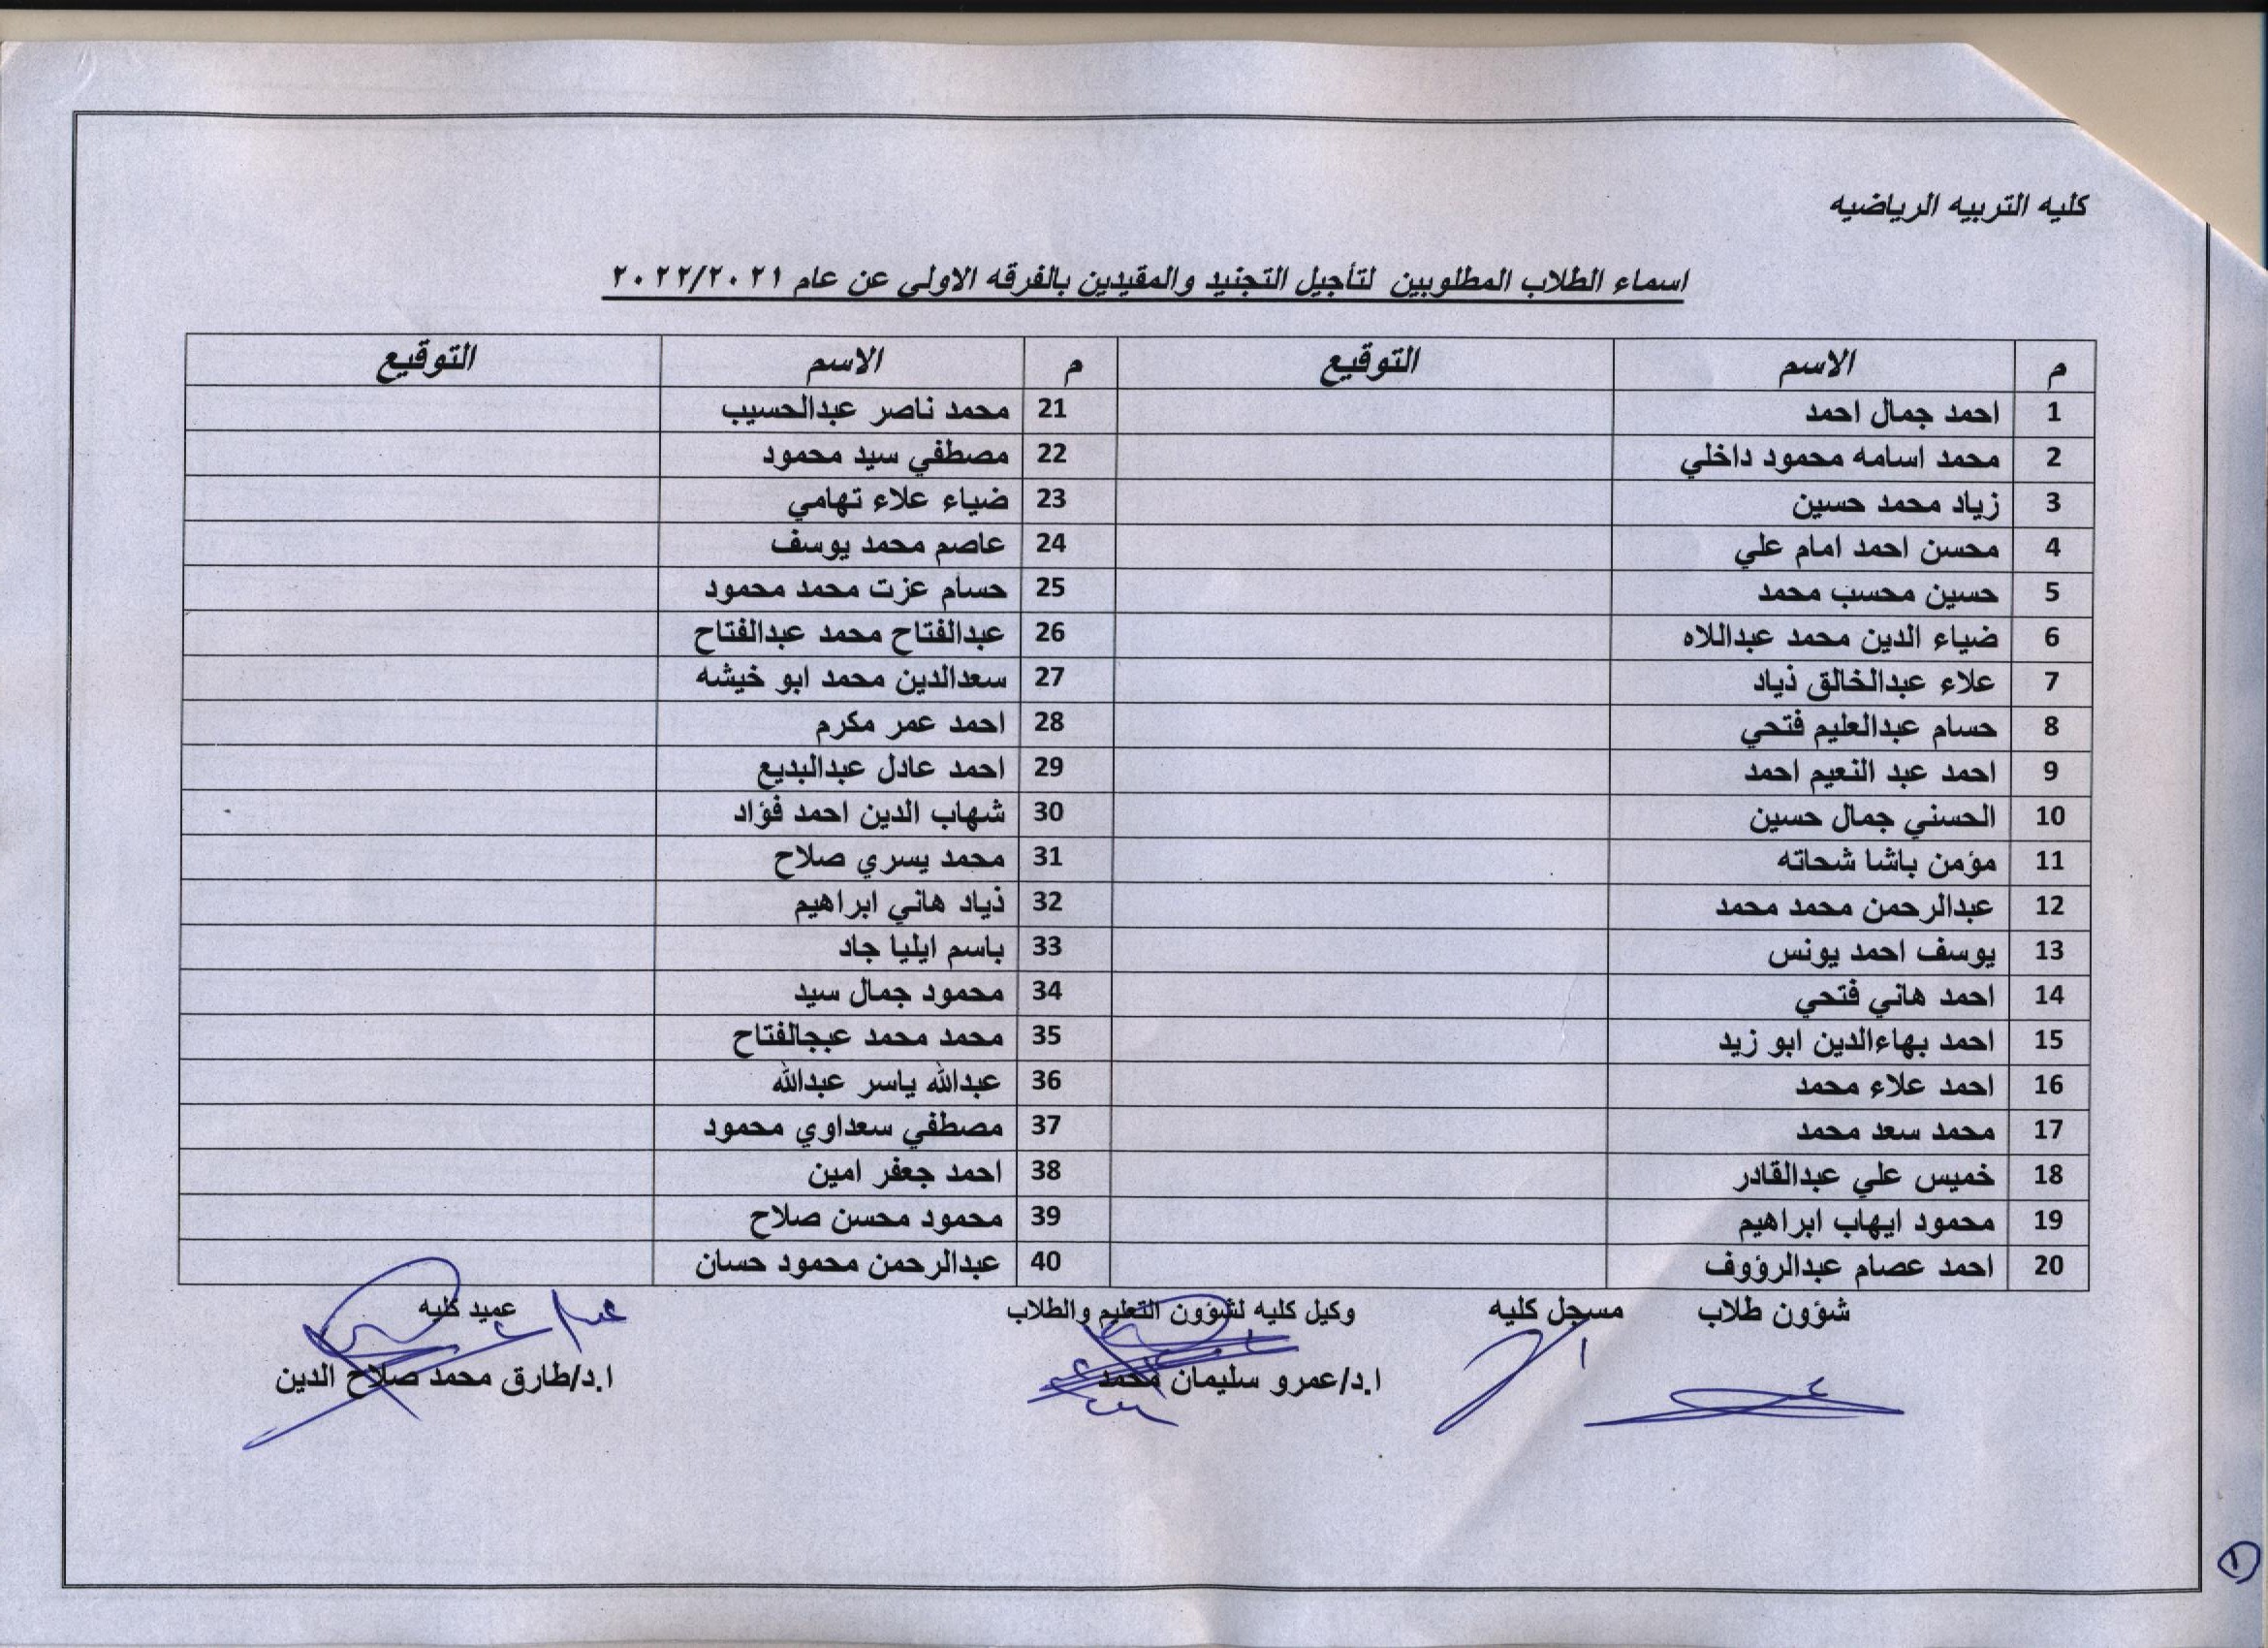 كليه التربيه الرياضيه
اسماء الطلاب المطلوبين لتأجيل التجنيد والمقيدين بالفرقه الاولى عن عام ٢٠٢٢/٢٠٢١
م الاسم التوقيع م الاسم التوقيع
1 احمد جمال احمد 21 محمد ناصر عبدالحسيب
2 محمد اسامه محمود داخلي 22 مصطفي سيد محمود
3 زياد محمد حسين 23 ضياء علاء تهامي
4 محسن احمد امام علي 24 عاصم محمد يوسف
5 حسين محسب محمد 25 حسام عزت محمد محمود
6 ضياء الدين محمد عبداللاه 26 عبدالفتاح محمد عبدالفتاح
7 علاء عبدالخالق ذياد 27 سعدالدين محمد ابو خيشه
8 حسام عبدالعليم فتحي 28 احمد عمر مكرم
9 احمد عبد النعيم احمد 29 احمد عادل عبدالبديع
10 الحسني جمال حسين 30 شهاب الدين احمد فؤاد
11 مؤمن باشا شحاته 31 محمد يسري صلاح
12 عبدالرحمن محمد محمد 32 ذياد هاني ابراهيم
13 يوسف احمد يونس 33 باسم ايليا جاد
14 احمد هاني فتحي 34 محمود جمال سيد
15 احمد بهاءالدين ابو زيد 35 محمد محمد عبجالفتاح
16 احمد علاء محمد 36 عبدالله ياسر عبدالله
17 محمد سعد محمد 37 مصطفي سعداوي محمود
18 خميس علي عبدالقادر 38 احمد جعفر امين
19 محمود ايهاب ابراهيم 39 محمود محسن صلاح
20 احمد عصام عبدالرؤوف 40 عبدالرحمن محمود حسان
شؤون طلاب مسجل كليه وكيل كليه لشؤون التعليم والطلاب عميد كليه
ا.د/عمرو سليمان محمد ا.د/طارق محمد صلاح الدين